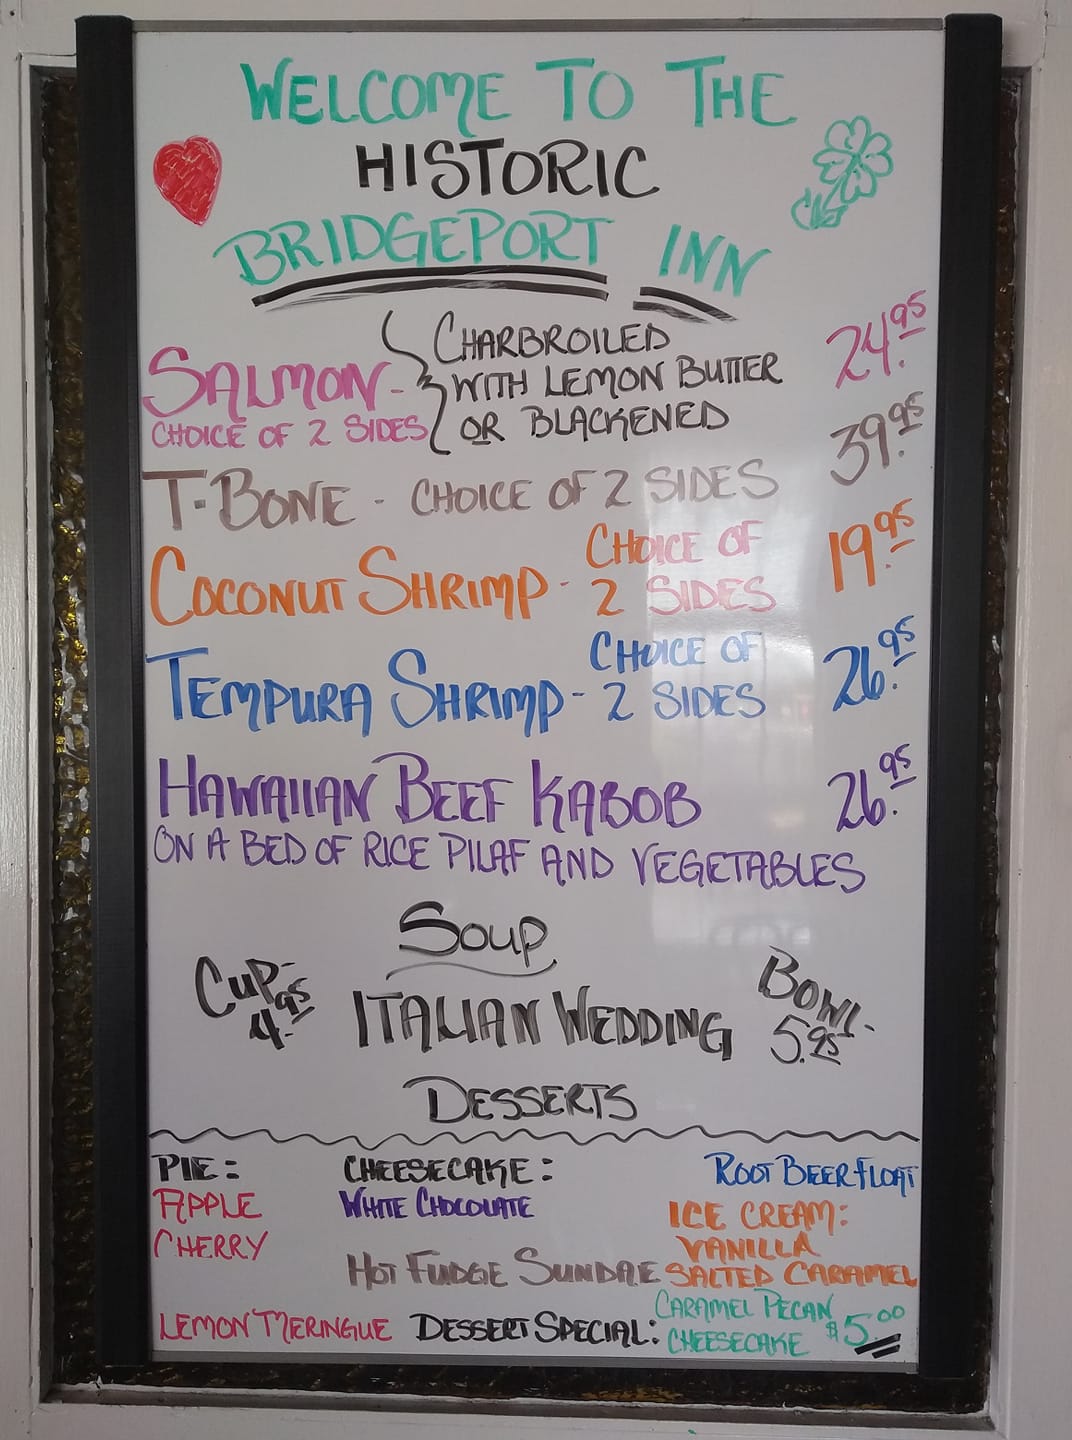 WELCOME TO THE
HISTORIC
BRIDGEPORT INN
SALMON - CHARBROILED WITH LEMON BUTTER OR BLACKENED 24.95
CHOICE OF 2 SIDES
T-BONE - CHOICE OF 2 SIDES 39.95
COCONUT SHRIMP - CHOICE OF 2 SIDES 19.95
TEMPURA SHRIMP - CHOICE OF 2 SIDES 26.95
HAWAIIAN BEEF KABOB 26.95
ON A BED OF RICE PILAF AND VEGETABLES
SOUP
CUP- 4.95 ITALIAN WEDDING BOWL- 5.95
DESSERTS
PIE:
APPLE
CHERRY
LEMON MERINGUE
CHEESECAKE:
WHITE CHOCOLATE
HOT FUDGE SUNDAE
ROOT BEER FLOAT
ICE CREAM:
VANILLA
SALTED CARAMEL
DESSERT SPECIAL: CARAMEL PECAN
CHEESECAKE $5.00